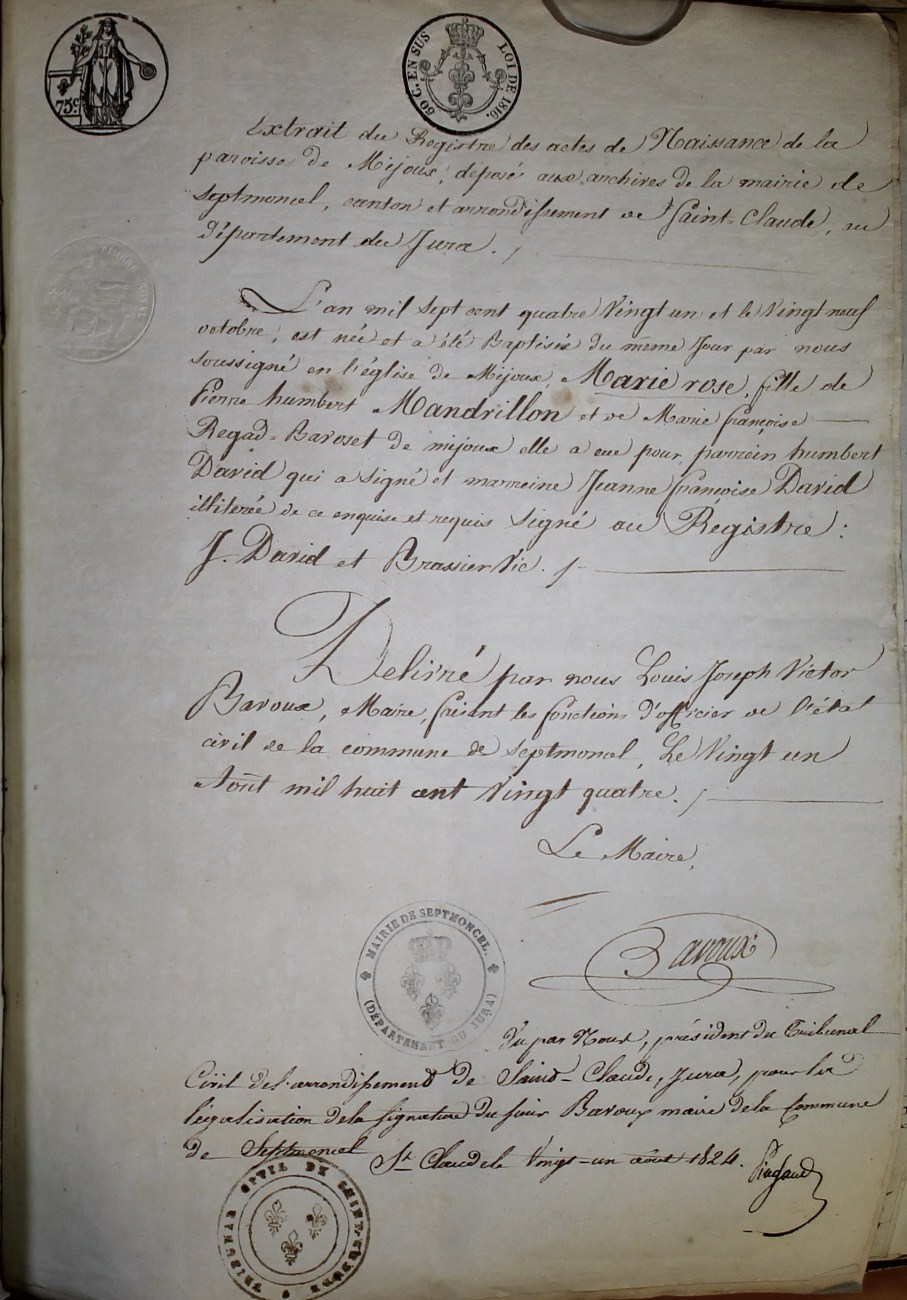 75c
50 C. EN SUS LOI DE 1816.
Extrait du Registre des actes de Naissance de la
paroisse de Mijoux, déposé aux archives de la mairie de
Septmoncel, canton et arrondissement de Saint-Claude, au
Département du Jura.
L'an mil sept cent quatre Vingt un et le Vingt neuf
octobre, est née et a été Baptisée du même Jour par nous
soussigné en l'église de Mijoux, Marie rose, fille de
Pierre humbert Mandrillon et de Marie françoise
Regad-Baroset de mijoux elle a eue pour parrein humbert
David qui a signé et marreine Jeanne françoise David
illiterée de ce enquise et requis Signé au Régistre :
J. David et Brassier Vic.
Délivré par nous Louis Joseph Victor
Bavoux, Maire, faisant les fonctions d'officier de l'état
civil de la commune de Septmoncel, Le Vingt un
Aoùt mil huit cent Vingt quatre.
Le Maire,
Bavoux
MAIRIE DE SEPTMONCEL.
(DÉPARTEMENT DU JURA)
Vu par Nous, président du Tribunal
Civil de l'arrondissement de Saint-Claude, Jura, pour la
légalisation de la signature du sieur Bavoux maire de la Commune
de Septmoncel St. Claude le Vingt-un août 1824.
TRIBUNAL CIVIL DE SAINT-CLAUDE